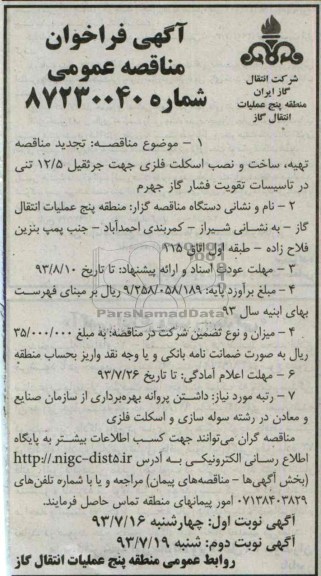 آگهی فراخوان
مناقصه عمومی
شماره ۸۷۲۳۰۰۴۰
شرکت انتقال
گاز ایران
منطقه پنج عملیات
انتقال گاز
۱ – موضوع مناقصه: تجدید مناقصه
تهیه، ساخت و نصب اسکلت فلزی جهت جرثقیل ۱۲/۵ تنی
در تاسیسات تقویت فشار گاز جهرم
۲ – نام و نشانی دستگاه مناقصه گزار: منطقه پنج عملیات انتقال
گاز – به نشانی شیراز – کمربندی احمدآباد – جنب پمپ بنزین
فلاح زاده – طبقه اول اتاق ۱۱۵
۳ – مهلت عودت اسناد و ارائه پیشنهاد: تا تاریخ ۹۳/۸/۱۰
۴ – مبلغ برآورد پایه: ۹/۲۵۸/۰۵۸/۱۸۹ ریال بر مبنای فهرست
بهای ابنیه سال ۹۳
ParsNamadData
۴ – میزان و نوع تضمین شرکت در مناقصه: به مبلغ ۳۵/۰۰۰/۰۰۰
ریال به صورت ضمانت نامه بانکی و یا وجه نقد واریز بحساب منطقه
۶ – مهلت اعلام آمادگی: تا تاریخ ۹۳/۷/۲۶
۷ – رتبه مورد نیاز: داشتن پروانه بهره‌برداری از سازمان صنایع
و معادن در رشته سوله سازی و اسکلت فلزی
مناقصه گران می‌توانند جهت کسب اطلاعات بیشتر به پایگاه
اطلاع رسانی الکترونیکی به آدرس http://.nigc-dist۵.ir
(بخش آگهی‌ها – مناقصه‌های پیمان) مراجعه و یا با شماره تلفن‌های
۰۷۱۳۸۴۰۳۸۲۹ امور پیمانهای منطقه تماس حاصل فرمایند.
آگهی نوبت اول: چهارشنبه ۹۳/۷/۱۶
آگهی نوبت دوم: شنبه ۹۳/۷/۱۹
روابط عمومی منطقه پنج عملیات انتقال گاز